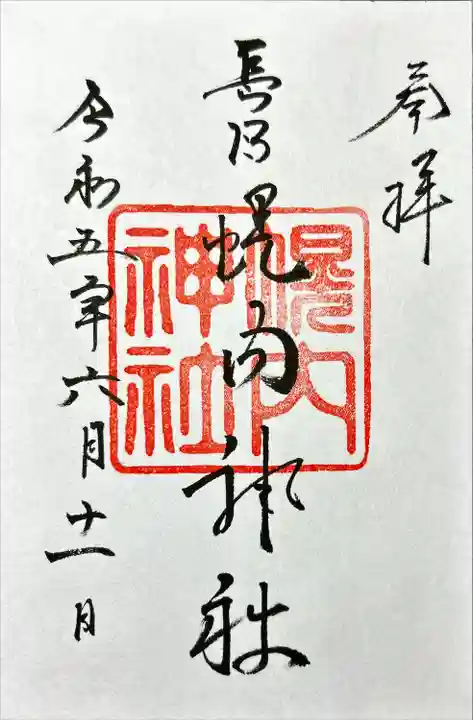 奉拝
長沼
幌内神社
幌内
神社
令和五年六月十一日